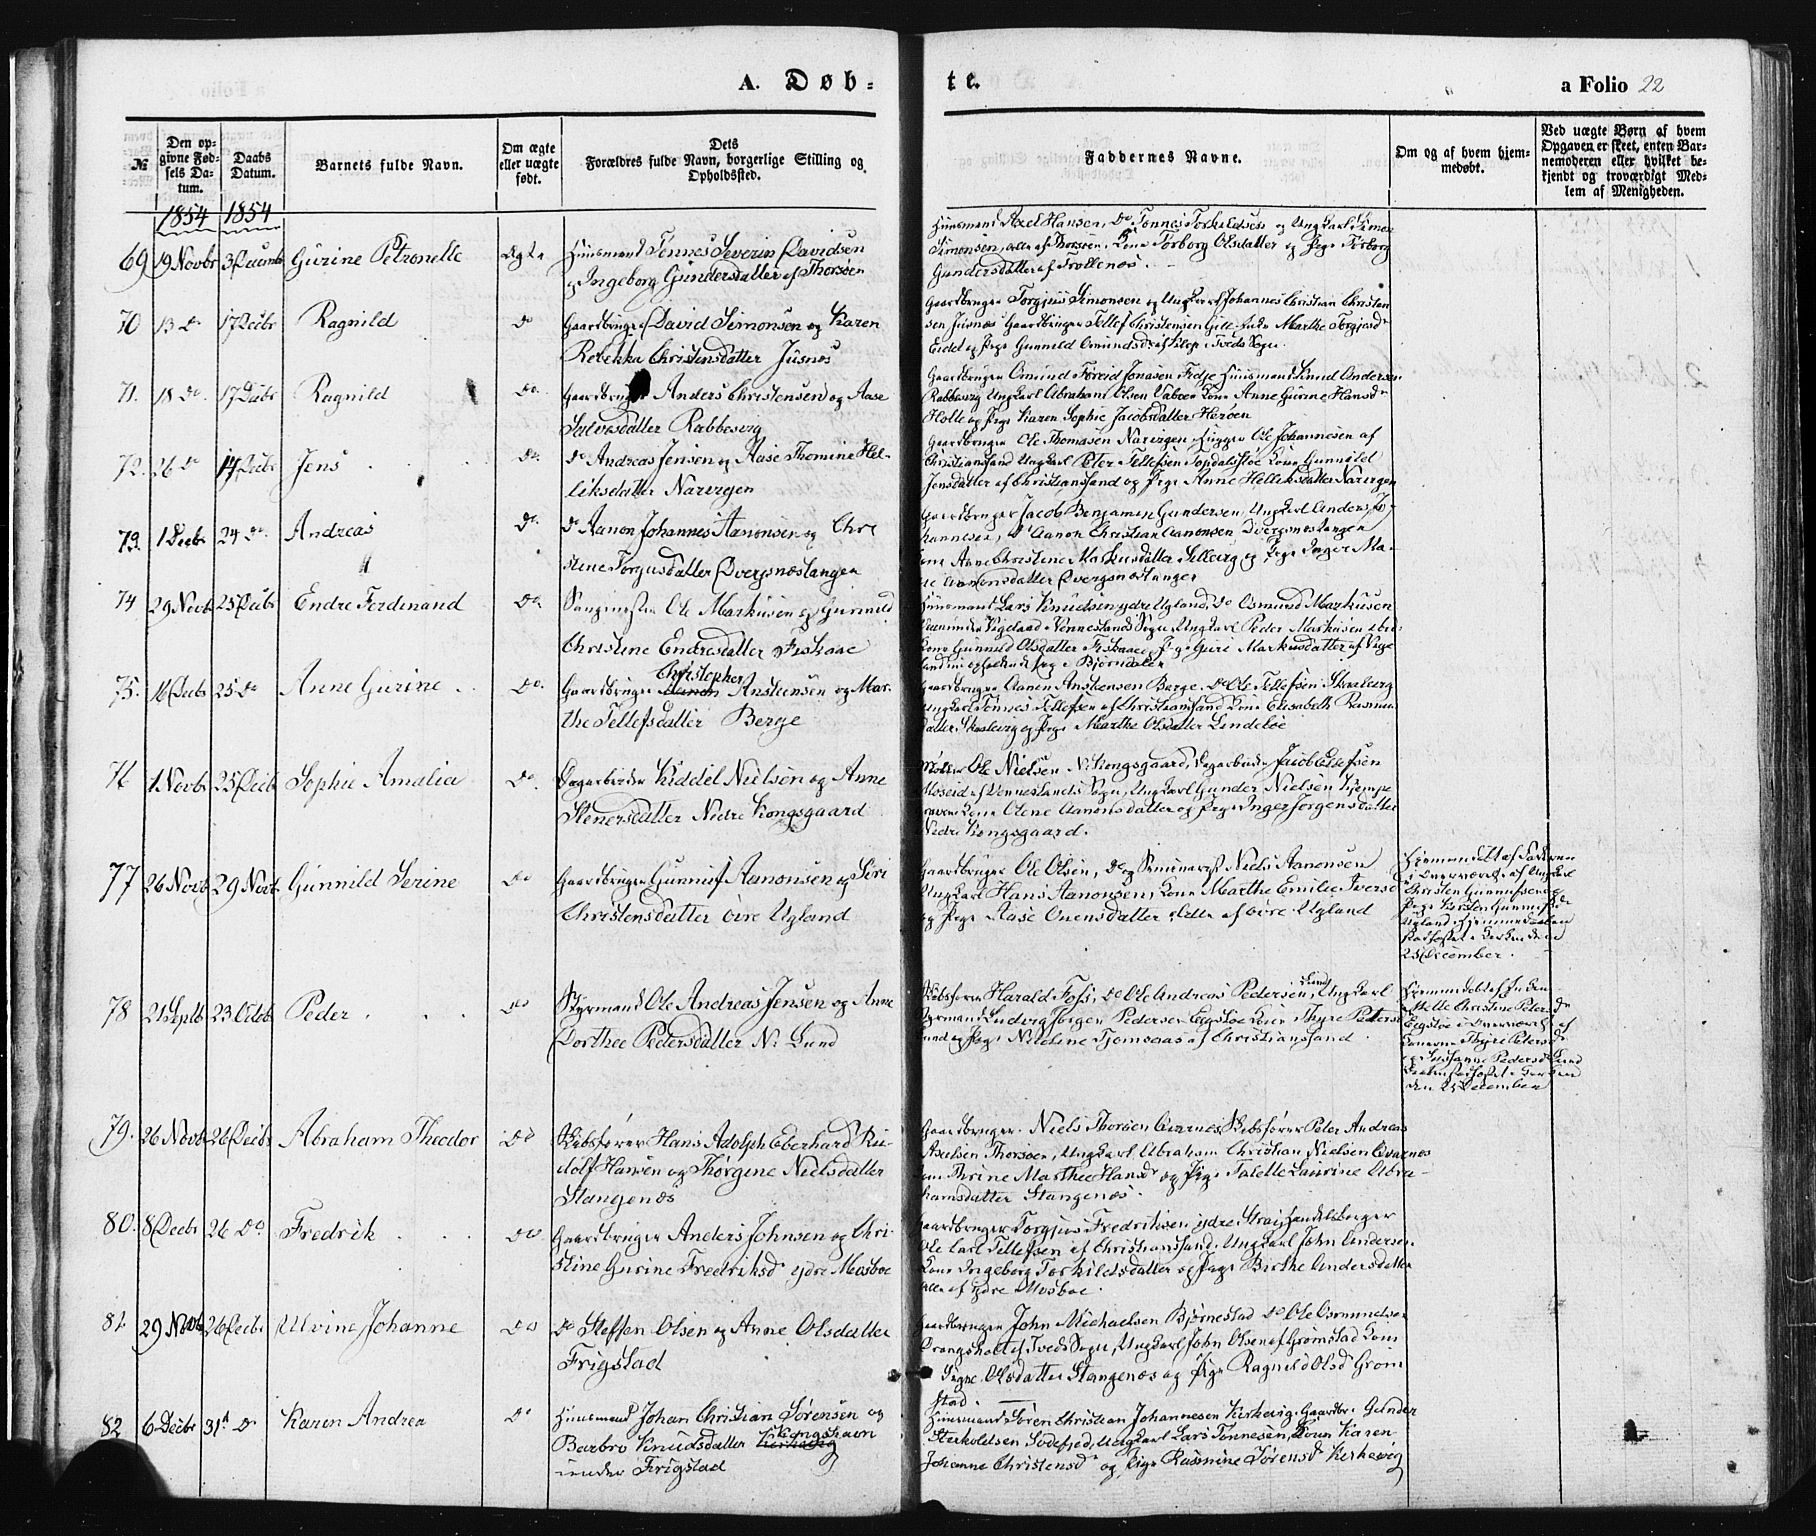 A. Døb-
te.
a Folio 22
№
Den op-
givne Fød-
sels Da-
tum.
Daabs
Datum.
Barnets fulde Navn.
Om ægte
eller uægte
født.
Dets
Forældres fulde Navn, borgerlige Stilling og
Opholdssted.
Faddernes Navne.
Om og af hvem hjem-
medøbt.
Ved uægte Børn af hvem
Opgaven er skeet, enten Bar-
nemoderen eller hvilket be-
kjendt og troværdigt Med-
lem af Menigheden.
1854 1854
69 19 Novbr 3 Decemb Gurine Petronelle Ægte
Huusmand Tønnes Severin Davidsen
og Ingeborg Gundersdatter af Thorsøen
Huusmand Axel Hansen, Do Tønnes Torkildsen og Ungkarl Simon
Simonsen, alle af Thorsøen, Kone Torborg Olsdatter og Pige Torborg
Gundersdatter af Trollenæs.
70 13 Do 17 Decbr Ragnild Do
Gaardbruger David Simonsen og Karen
Rebekka Christensdatter Justnes
Gaardbruger Torgius Simonsen og Ungkarl Johannes Christian Christen
sen Justnes Gaardbruger Tellef Christensen Marthe Torgjusd
Eidet og Pige Gunnild Omundsdr af i Tveds Sogn.
71. 18 Do. 17 Decbr Ragnild Do.
Gaardbruger Anders Christensen og Aase
Salvesdatter Rabbesvig
Gaardbruger Omund Toreid Jonasen Fidje Huusmand Knud Andersen
Rabbesvig Ungkarl Abraham Olsen Kone Anne Gurine Hansd
Holte og Pige Karen Sophie Jacobsdatter Herøen
72. 26 Do 17 Decbr Jens Do.
Do Andreas Jensen og Aase Thomine Hel-
liksdatter Narvigen
Gaardbruger Ole Thomasen Narvigen Ole Johannesen af
Christianssand Ungkarl Peter Tellefsen Kone Gunnild
Jensdatter af Christianssand og Pige Anne Helliksdatter Narvigen
73. 1 Decbr 24 Do. Andreas Do.
Do Aanon Johannes Aanonsen og Chri
stine Torgusdatter Dvergsnæstangen
Gaardbruger Jacob Benjamin Gundersen, Ungkarl Anders Jo-
hannesen, Do Aanon Christian Aanonsen Dvergsnæstangen
Anne Christine Markusdatter og Pige Inger Ma-
rie Aanonsdatter Dvergsnæstangen
74 29 Novbr 25 Decbr Endre Ferdinand Do.
Ole Markusen og Gunnild
Christine Endresdatter Fiskaae
Huusmand Lars Knudsen ydre Ugland, Do Osmund Markusen
Vigeland Venneslands Sogn, Ungkarl Peder Markusen ibid
Kone Gunnild Olsdatter Fiskaae og Pige Guri Markusdatter af Vige
land Pige Bjørndalen
75. 16 Decbr 25 Do Anne Gurine Do.
Christopher
Gaardbruger Anstensen og Mar-
the Tellefsdatter Berge
Gaardbruger Aanen Anstensen Berge, Do Ole Tellefsen Skaalevig
Ungkarl Tønnes Tellefsen af Christianssand Kone Elisabeth Rasmus
datter Skaalevig og Pige Marthe Olsdatter Lindeløe
76 1 Novbr 25 Decb Sophie Amalia Do
Dagarbeider Kiddel Nielsen og Anne
Stenersdatter Nedre Kongsgaard
Møller Ole Nielsen N. Kongsgaard, Dagarbeider Jacob Ellefsen
Moseid af Venneslands Sogn, Ungkarl Gunder Nielsen
Kone Olene Aanonsdatter og Pige Inger Jørgensdatter
Nedre Kongsgaard.
77 26 Novb 29 Novb. Gunnild Serine Do
Gaardbruger Gunnuf Aanonsen og Siri
Christensdatter øvre Ugland
Gaardbruger Ole Olsen, Do og Seminarist Niels Aanonsen
Ungkarl Hans Aanonsen, Kone Marthe Emilie Iversd
og Pige Aase Ovensdatter alle af øvre Ugland
Hjemmedøbt af Faderen
i Overværelse af Ungkarl
Christen Gunnufsen og
Pige Kirsten Gunnufsd
Ugland Hjemmedaaben
stadfæstet i Kirken den
25 December.
78 21 Septb 23 Octob Peder Do
Styrmand Ole Andreas Jensen og Anne
Dorthee Pedersdatter N. Lund
Skibsfører Harald Foss, Do Ole Andreas Pedersen Lund, Ungkarl
Styrmand Ludvig Jørgen Pedersen Egsløe Kone Thyre Petersd
Lund og Pige Nicoline Tjomsaas af Christianssand
Hjemmedøbt af
Mette Christine Petersd
Egsløe i Overværelse af
Konerne Thyre Petersd
og Susanne Pedersd Lund
Daaben stadfæstet i Kirken
den 25 December
79. 26 Novb 26 Decbr Abraham Theodor Do
Skibsfører Hans Adolph Eberhard Ru-
dolf Hansen og Thørgine Nielsdatter
Stangenæs
Gaardbruger Niels Thorsen Qvarnes, Skibsfører Peter Andreas
Axelsen Thorsøen, Ungkarl Abraham Christian Nielsen Qvarnes
Thrine Marthe Hansd og Pige Talette Laurine Abra-
hamsdatter Stangenæs.
80. 8 Decbr 26 Do Fredrik Do
Gaardbruger Anders Johnsen og Chri-
stine Gurine Fredriksd ydre Mosboe
Gaardbruger Torgius Fredriksen ydre Strai, Handelsborger
Ole Carl Tellefsen af Christianssand, Ungkarl John Andersen
Kone Ingeborg Torkildsdatter og Pige Birthe Andersdatter
alle af ydre Mosboe.
81. 29 Novb 26 Decbr Alvine Johanne Do
Do Steffen Olsen og Anne Olsdatter
Frigstad
Gaardbruger John Michaelsen Bjørnestad Do Ole Osmundsen
Drangsholt af Tveds Sogn, Ungkarl John Olsen af Grømstad Kone
Signe Olsdatter Stangenæs og Pige Ragnild Olsd Grøm
stad.
82 6 Decbr 31t Do Karen Andrea Do
Huusmand Johan Christian Sørensen og
Barbro Knudsdatter Kirkevig Kongshavn
under Frigstad
Huusmand Søren Christian Johannesen Kirkevig, Gaardbr. Gunder
Sterkoldsen Ungkarl Lars Tønnesen, Konen Karen
Johanne Christensd og Pige Rasmine Sørensd Kirkevig